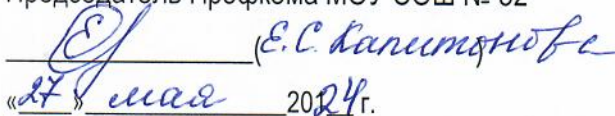 Председатель Профкома МОУ СОШ № 62
(Е.С. Капитонова)
«27» мая 2024г.